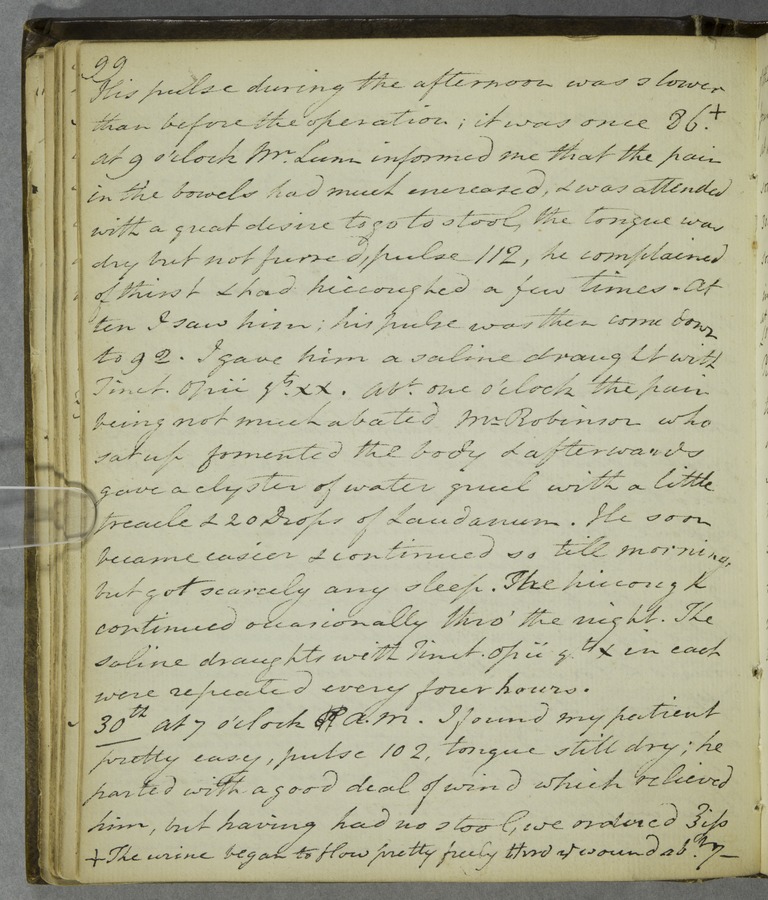 99
His pulse during the afternoon was slower
than before the operation; it was once 86.+
at 9 o'clock Mr. Lunn informed me that the pain
in the bowels had much encreased, & was attended
with a great desire to go to stool, the tongue was
dry but not furred, pulse 112, he complained
of thirst & had hiccoughed a few times. At
ten I saw him; his pulse was then come down
to 92. I gave him a saline draught with
Tinct. Opii gts. xx. abt. one o'clock the pain
being not much abated Mr Robinson who
sat up fomented the body & afterwards
gave a clyster of water gruel with a little
treacle & 20 Drops of Laudanum. He soon
became easier & continued so till morning,
but got scarcely any sleep. The hiccough
continued occasionally thro' the night. The
saline draughts with Tinct. Opii gtt x in each
were repeated every four hours.
30th at 7 o'clock a.m. I found my patient
pretty easy, pulse 102, tongue still dry; he
parted with a good deal of wind which relieved
him, but having had no stool, we ordered ʒifs
+ The urine began to flow pretty freely thro' ye wound abt. 7